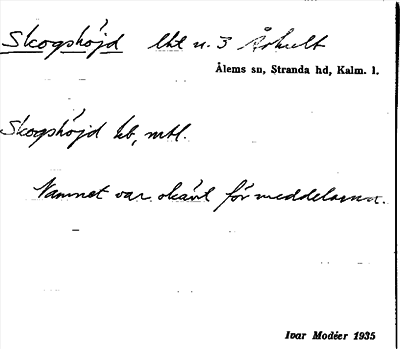 Skogshöjd lht u. 3 Århult
Ålems sn, Stranda hd, Kalm. l.
Skogshöjd kb, mtl.
Namnet var okänt för meddelarna.
Ivar Modéer 1935